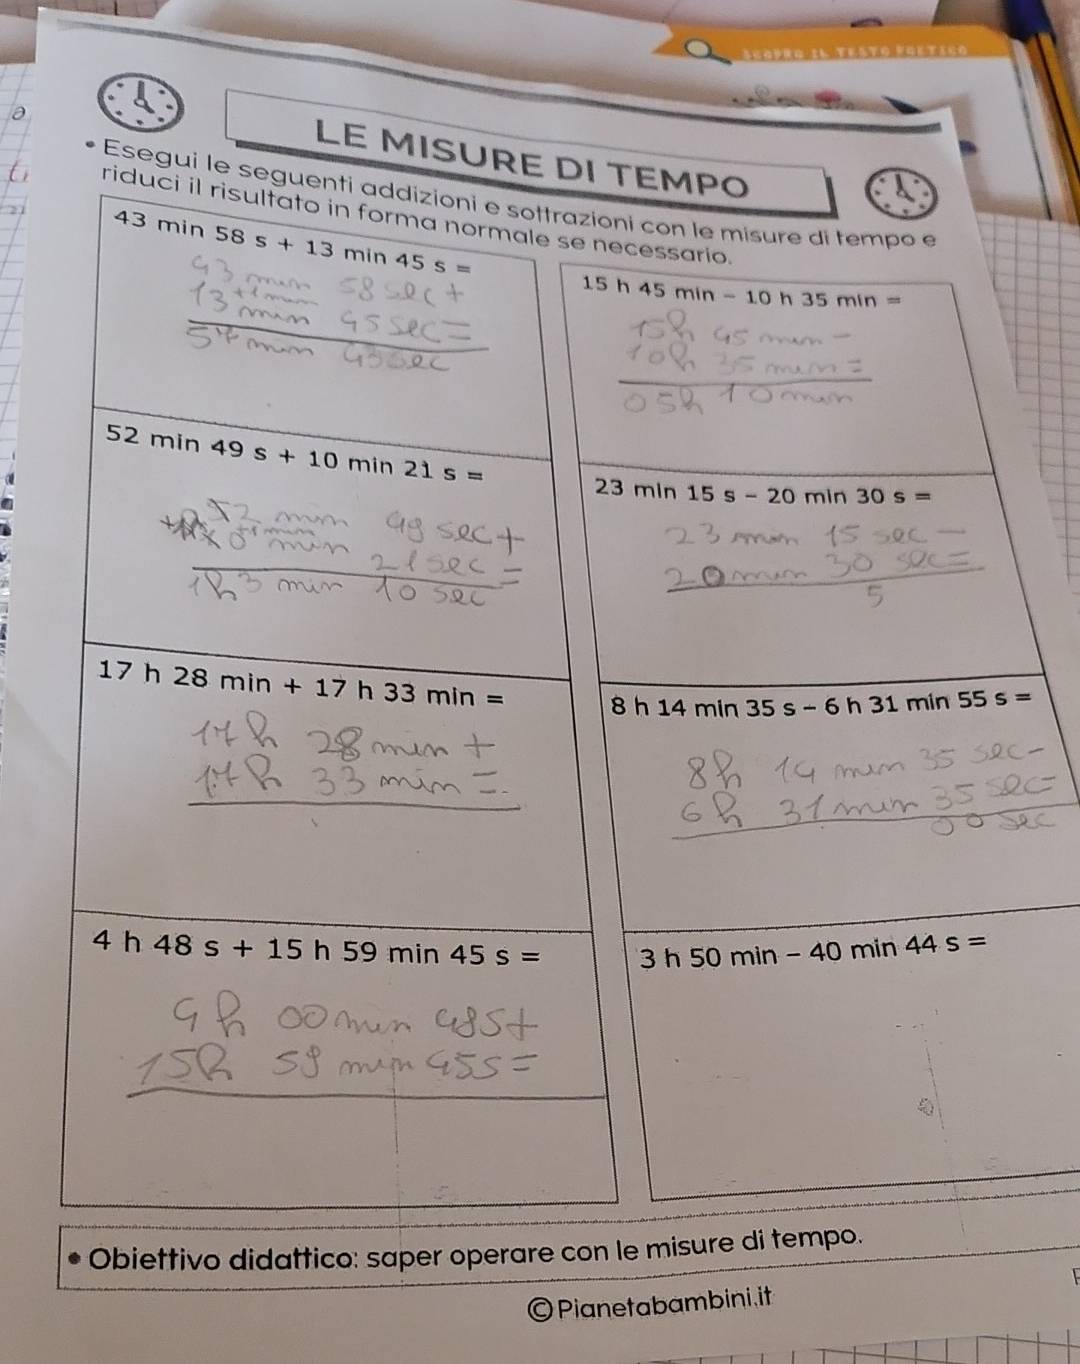 SCOPRO IL TESTO POETICO
LE MISURE DI TEMPO
• Esegui le seguenti addizioni e sottrazioni con le misure di tempo e
riduci il risultato in forma normale se necessario.
43 min 58 s + 13 min 45 s =
43 min 58 sec +
13 +1 min min 45 sec =
57 min 43 sec
15 h 45 min - 10 h 35 min =
15h 45 min -
10h 35 min =
05h 10 min
52 min 49 s + 10 min 21 s =
52 min 49 sec +
+1 min min 21 sec =
1h 3 min 10 sec
23 min 15 s - 20 min 30 s =
23 min 15 sec -
20 min 30 sec =
5
17 h 28 min + 17 h 33 min =
17h 28 min +
17h 33 min =
8 h 14 min 35 s - 6 h 31 min 55 s =
8h 14 min 35 sec -
6h 31 min 35 sec =
00 sec
4 h 48 s + 15 h 59 min 45 s =
4h 00 min 48s +
15h 59 min 45s =
3 h 50 min - 40 min 44 s =
• Obiettivo didattico: saper operare con le misure di tempo.
©Pianetabambini.it